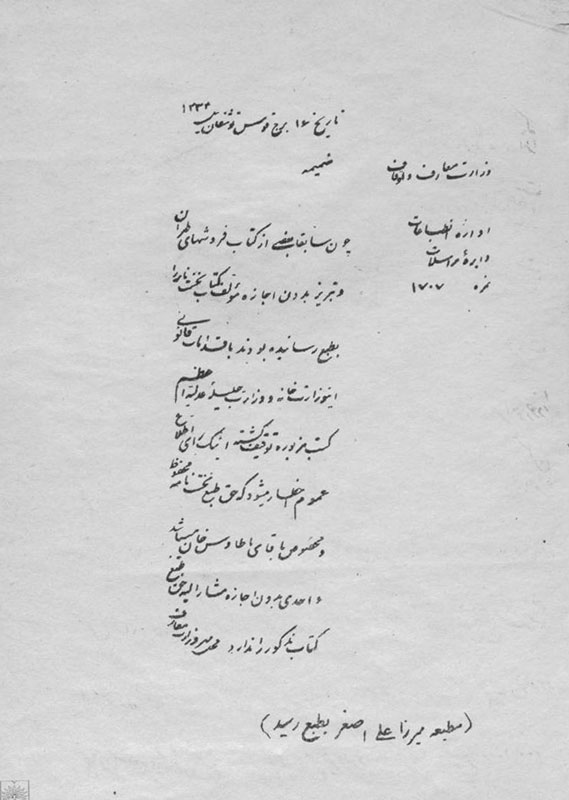 تاریخ ۱۶ برج قوس توشقان ئیل ۱۳۳۴
وزارت معارف و اوقاف
ضمیمه
اداره انطباعات
دایرهٔ مراسلات
نمره ۱۷۰۷
چون سابقاً بعضی از کتاب فروشهای طهران
و تبریز بدون اجازه مؤلف کتاب تخت نامه را
بطبع رسانیده بودند باقدامات قانونی
اینوزارت خانه و وزارت جلیلهٔ عدلیه اعظم
کتب مزبوره توقیف گشته اینک برای اطلاع
عموم اخطار میشود که حق طبع نامه محفوظ
و مخصوص باقای طاطاوس خان میباشد
و احدی بدون اجازه مشارالیه حق طبع
کتاب مذکور را ندارد محل مهر وزارت معارف
(مطبعه میرزا علی اصغر بطبع رسید)